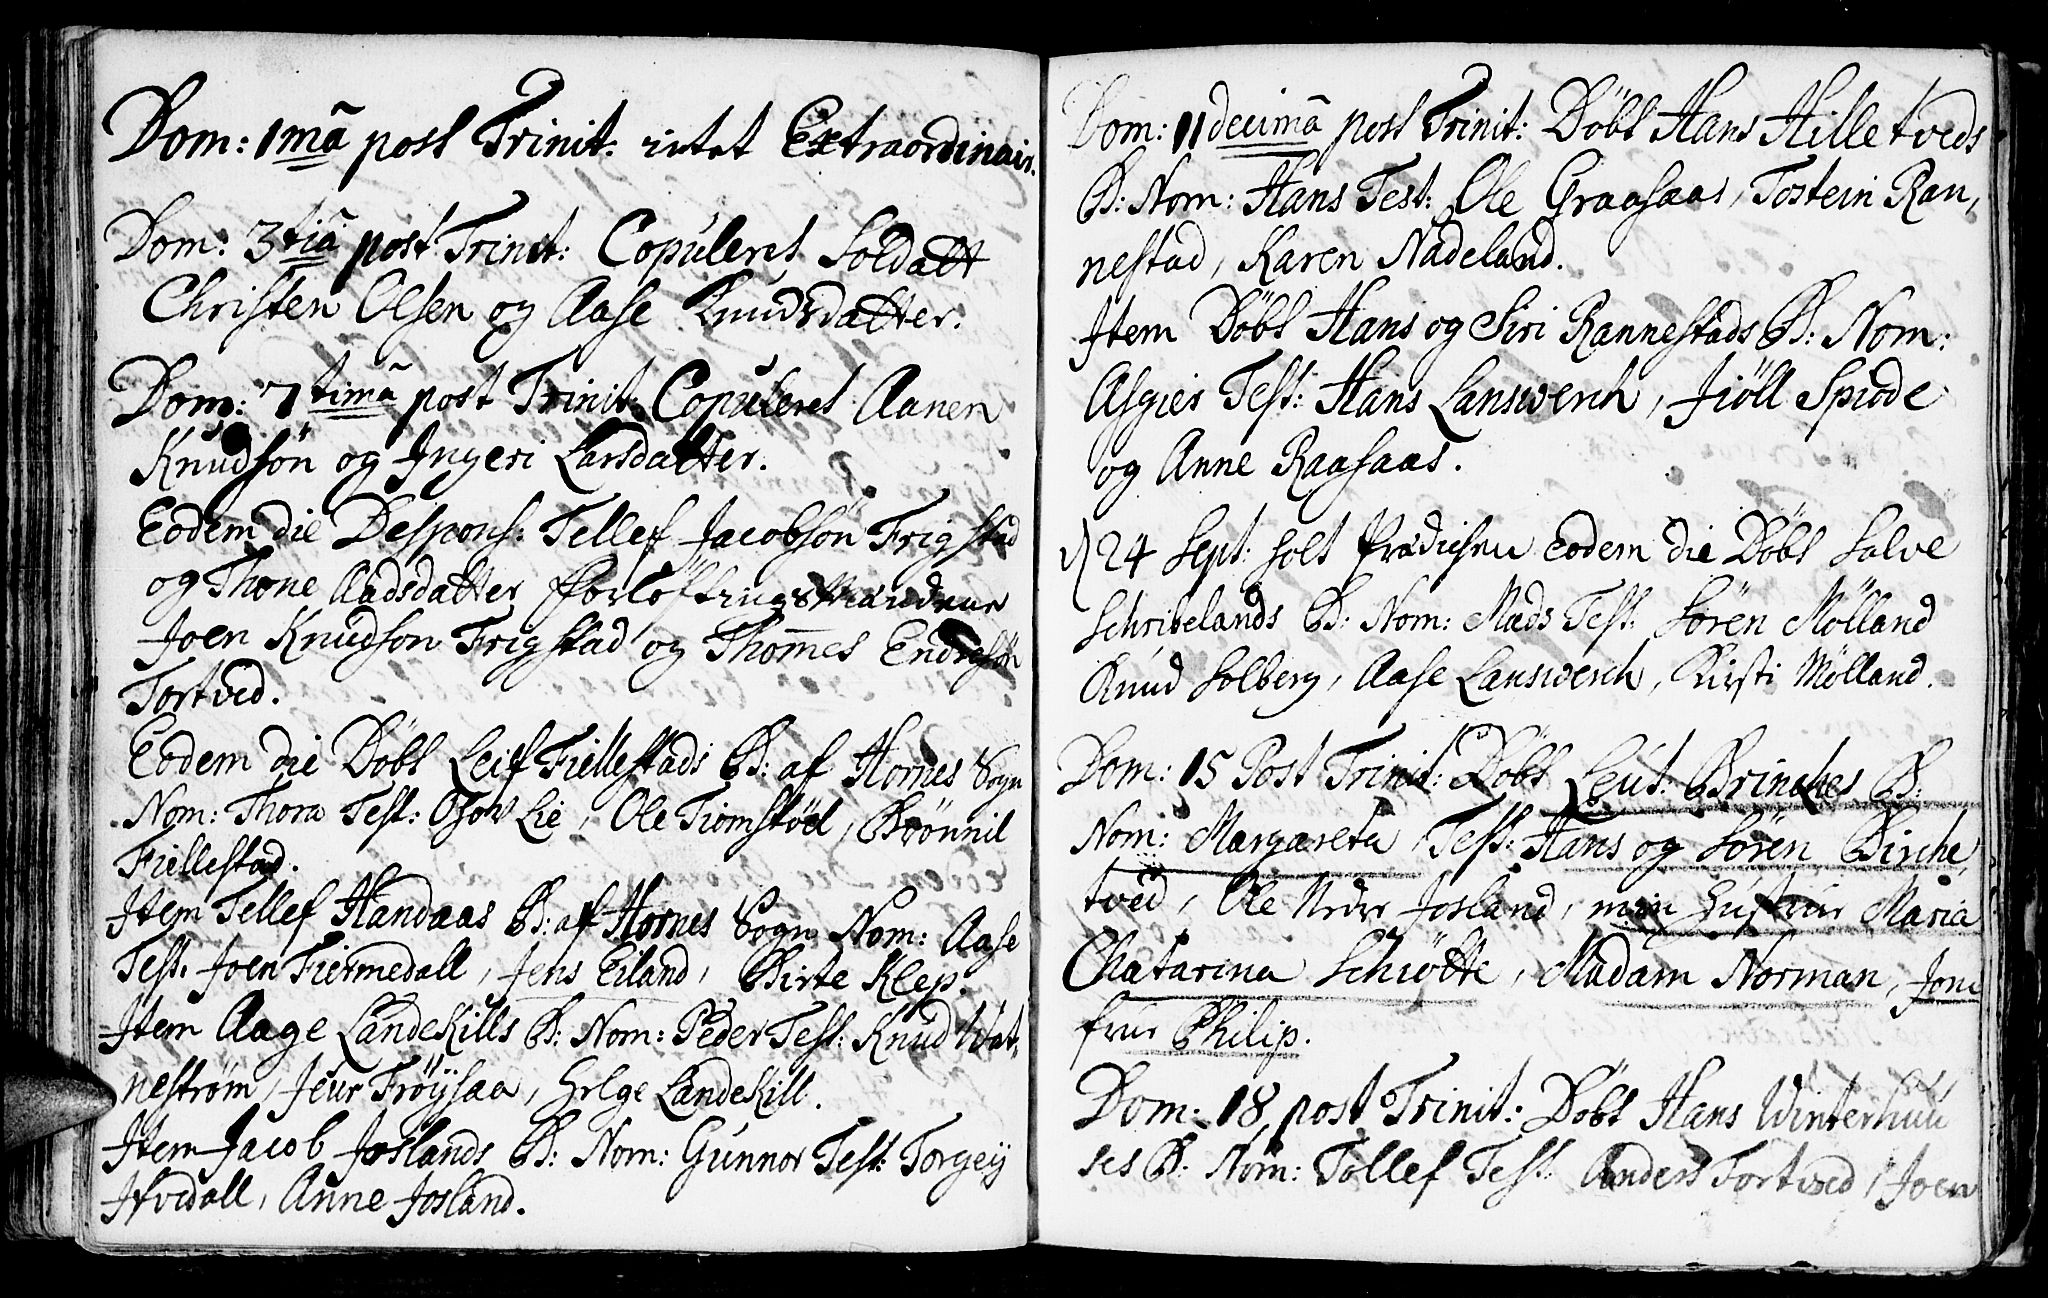 Dom: 1mā post Trinit: intet Extraordinair.
Dom: 3tiā post Trinit: Copuleret Soldatt
Christen Olsen og Aase Knudsdatter.
Dom: 7timā post Trinit: Copuleret Aanen
Knudsøn og Ingeri Larsdatter.
Eodem die Despons: Tellef Jacobsøn Frigstad
og Thone Aadsdatter Forløftningsmændene
Joen Knudsøn Frigstad og Thom̄es Endresøn
Tortved.
Eodem die Döbt Leif Fiellestads B: af Hornes Sogn
Nom: Thora Test: Osov Lie, Ole Tiomstöel, Brönnil
Fiellestad.
Item Tellef Handaas B: af Hornes Sogn Nom: Aase
Test. Joen Fiermedall, Jens Eiland, Birte Klep.
Item Aage Landekills B: Nom: Peder Test: Knud Wat,
nestrøm, Jeur Frøysaa, Helge Landekill.
Item Jacob Joslands B: Nom: Gunnor Test: Torgeij
Ifvedall, Anne Josland.
Dom: 11decimā post Trinit: Döbt Hans Hilletveds
B: Nom: Hans Test: Ole Graasaas, Tostein Ran,
nestad, Karen Nadeland.
Item Döbt Hans og Siri Rannestads B: Nom:
Asgier Test: Hans Lanswerch, Fiöll Spiode
og Anne Raasaas.
D 24 Sept: holt Prædichen Eodem die Döbt Salve
Schribelands B: Nom: Mads Test: Sören Mölland
Knud Solberg, Aase Lanswerch, Kirsti Mölland.
Dom: 15 Post Trinit: Döbt Leut: Brinches B:
Nom: Margareta Test: Hans og Sören Birche,
tved, Ole Nedre Josland, min Hustrue Maria
Chatarina Schiötte, Madam Norman, Jom
frue Philip.
Dom: 18 post Trinit: Döbt Hans Winterhuu
ses B: Nom: Tollef Test: Anders Tortved, Joen